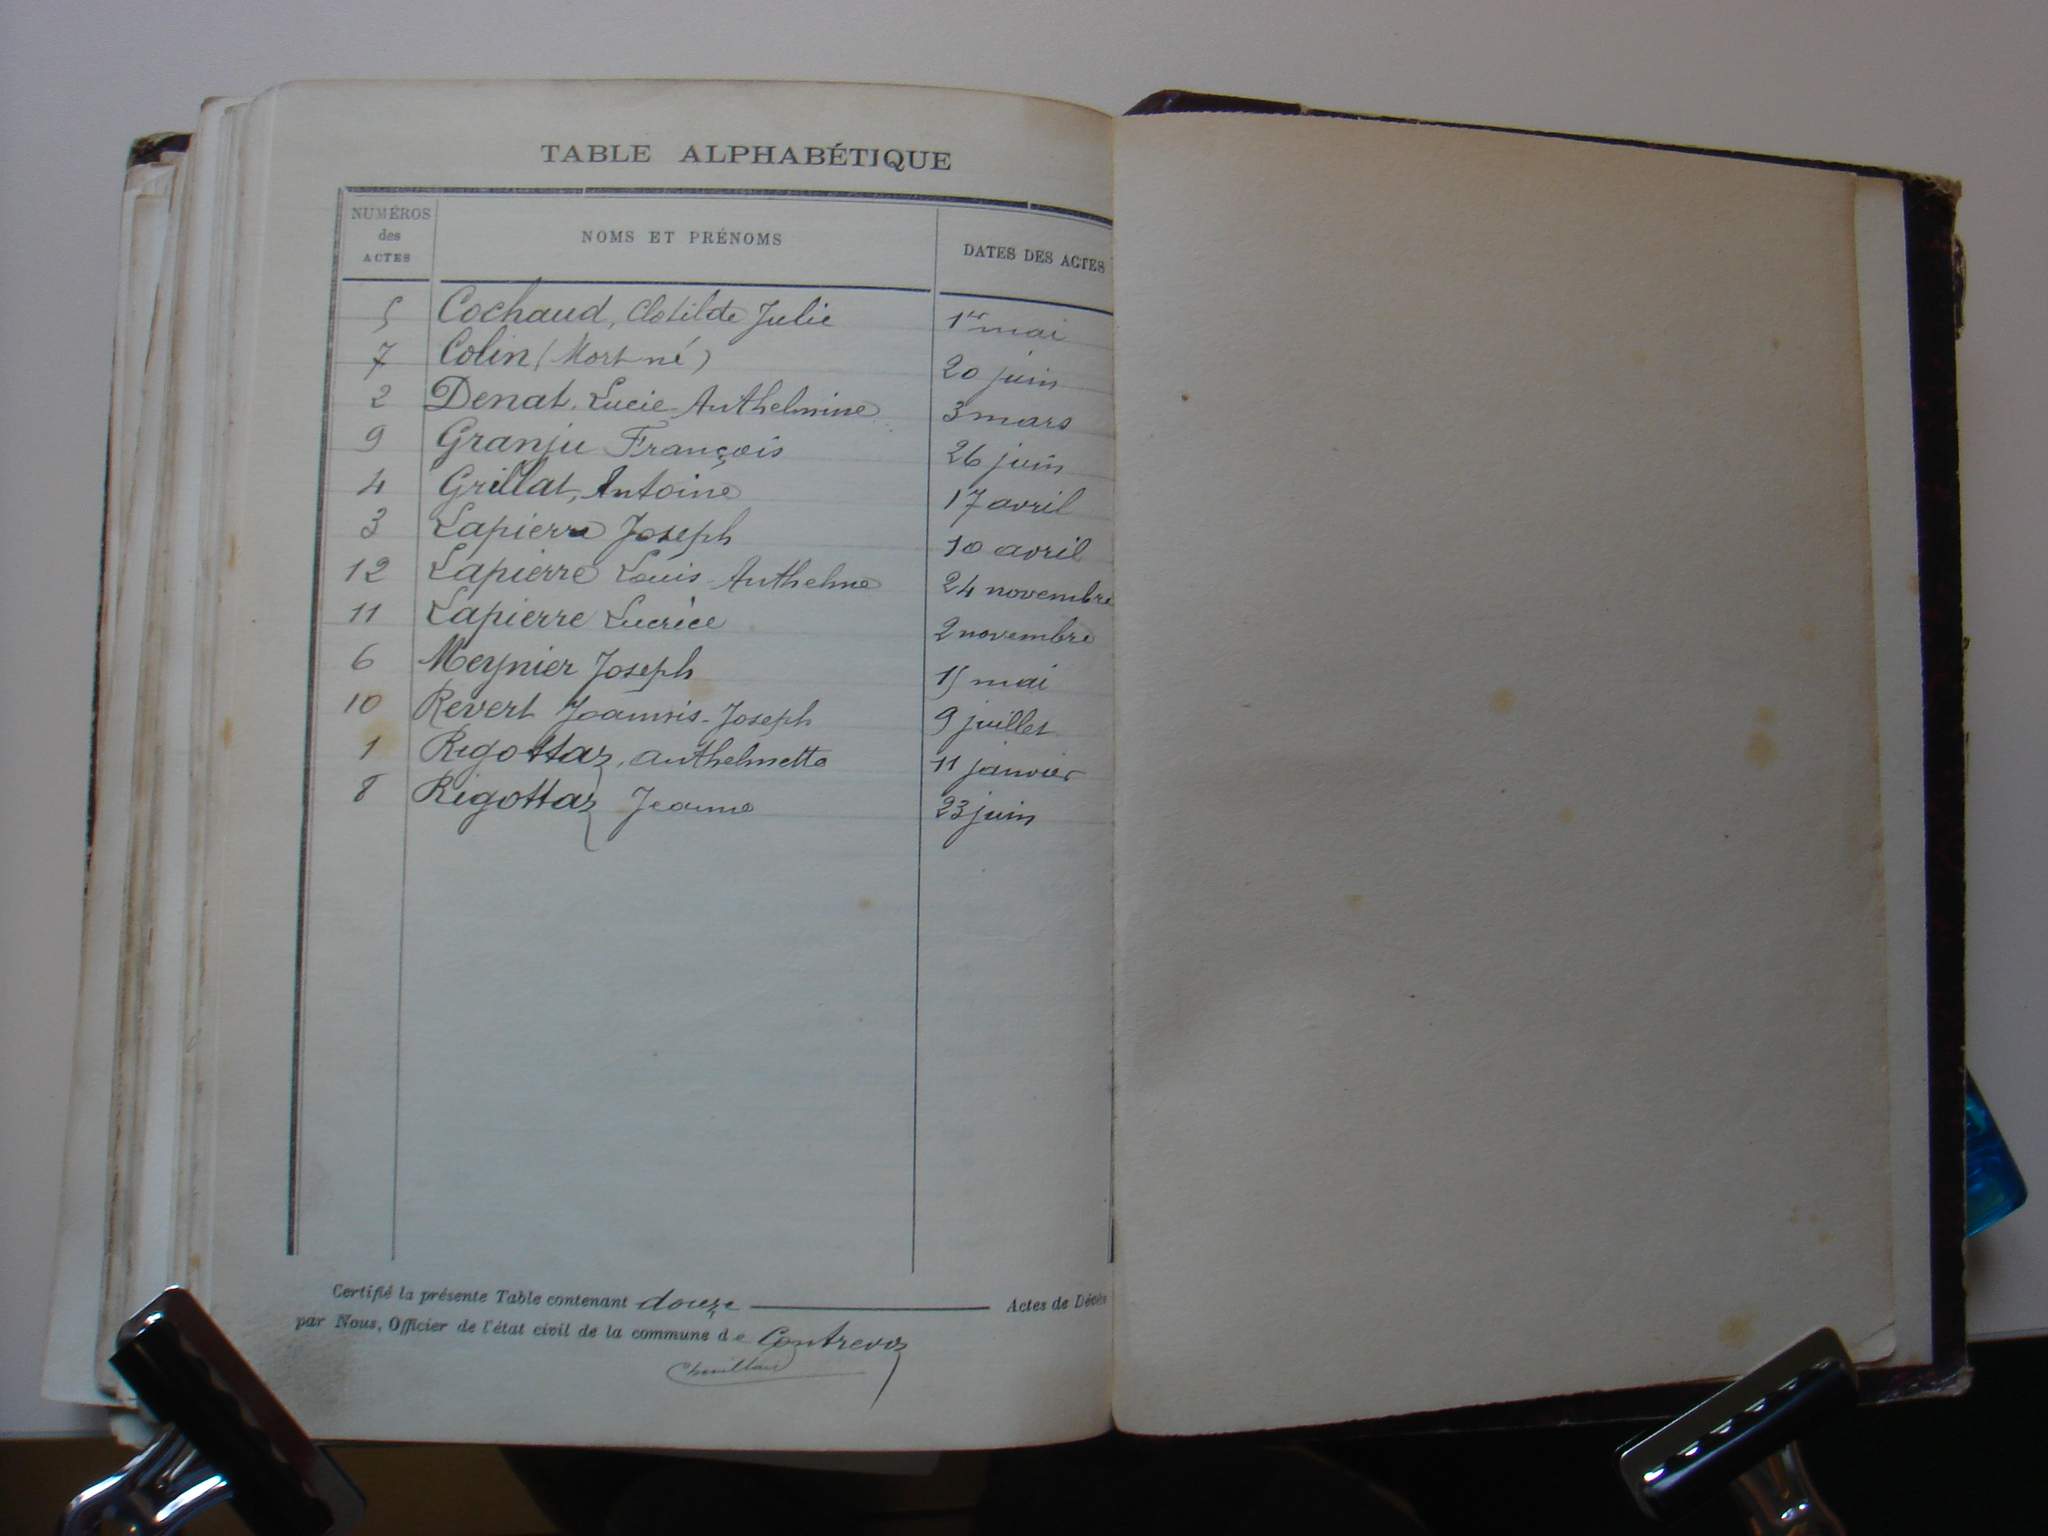 TABLE ALPHABÉTIQUE
NUMÉROS des ACTES NOMS ET PRÉNOMS DATES DES ACTES
5 Cochaud, Clotilde Julie 1er mai
7 Colin (Mort né) 20 juin
2 Denat, Lucie Anthelmine 3 mars
9 Granju François 26 juin
4 Grillat, Antoine 17 avril
3 Lapierre Joseph 10 avril
12 Lapierre Louis Anthelme 24 novembre
11 Lapierre Lucrèce 2 novembre
6 Meynier Joseph 15 mai
10 Revert Joannis-Joseph 9 juillet
1 Rigottaz, Anthelmette 11 janvier
8 Rigottaz Jeanne 23 juin
Certifié la présente Table contenant douze Actes de Décès
par Nous, Officier de l'état civil de la commune de Contrevoz